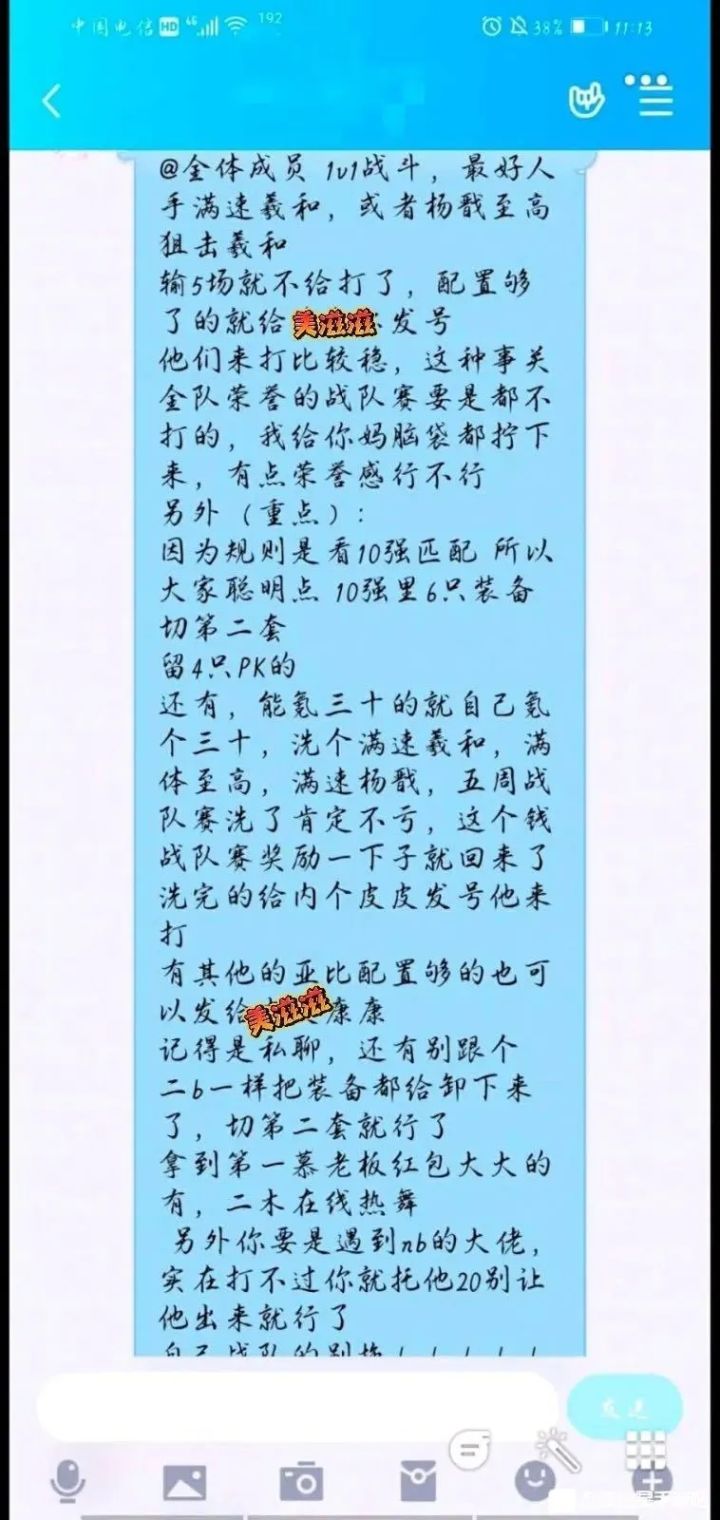 中国电信 HD 4G 192 38% 11:13
@全体成员 1v1战斗，最好人
手满速羲和，或者杨戬至高
狙击羲和
输5场就不给打了，配置够
了的就给美滋滋发号
他们来打比较稳，这种事关
全队荣誉的战队赛要是都不
打的，我给你妈脑袋都拧下
来，有点荣誉感行不行
另外（重点）：
因为规则是看10强匹配 所以
大家聪明点 10强里6只装备
切第二套
留4只PK的
还有，能氪三十的就自己氪
个三十，洗个满速羲和，满
体至高，满速杨戬，五周战
队赛洗了肯定不亏，这个钱
战队赛奖励一下子就回来了
洗完的给内个皮皮发号他来
打
有其他的亚比配置够的也可
以发给美滋滋康康
记得是私聊，还有别跟个
二b一样把装备都给卸下来
了，切第二套就行了
拿到第一慕老板红包大大的
有，二木在线热舞
另外你要是遇到nb的大佬，
实在打不过你就托他20别让
他出来就行了
自己战队的别
发送